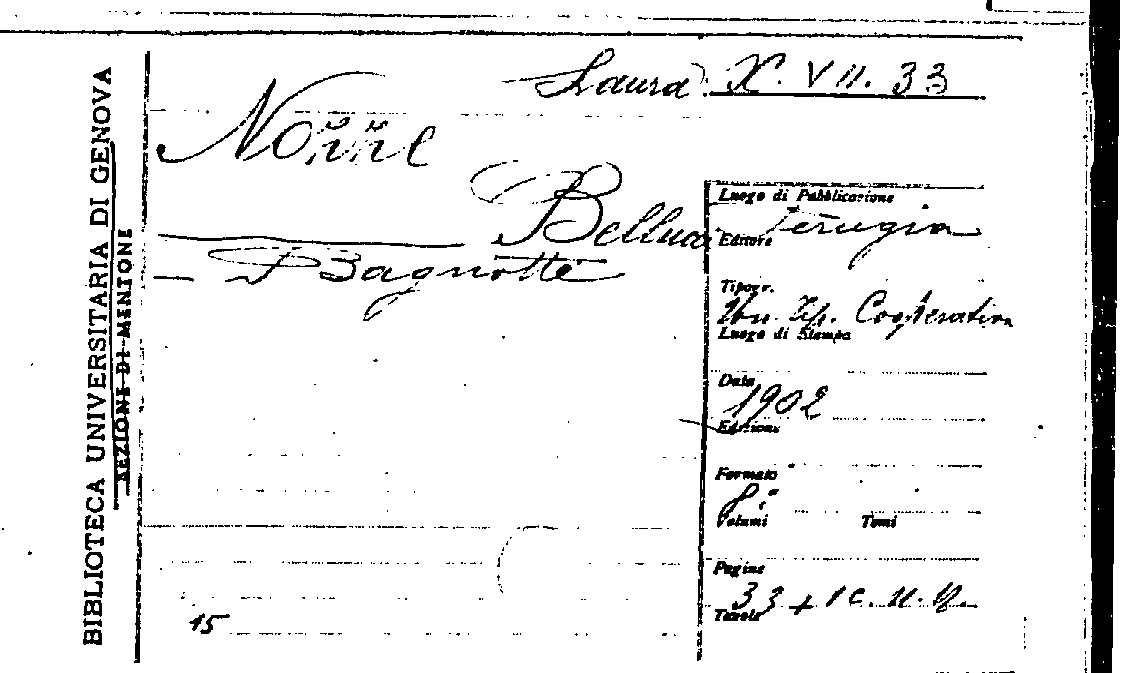 BIBLIOTECA UNIVERSITARIA DI GENOVA
SEZIONE DI MENTONE
Laura X. VII. 33
Nozze
Bellucci
— Bagnotti
Luogo di Pubblicazione
Perugia
Editore
Tipogr.
Un. Tip. Cooperativa
Luogo di Stampa
Data
1902
Edizione
Formato
8°
Volumi Tomi
Pagine
33 + 1 c. n. n.
Tavole
15